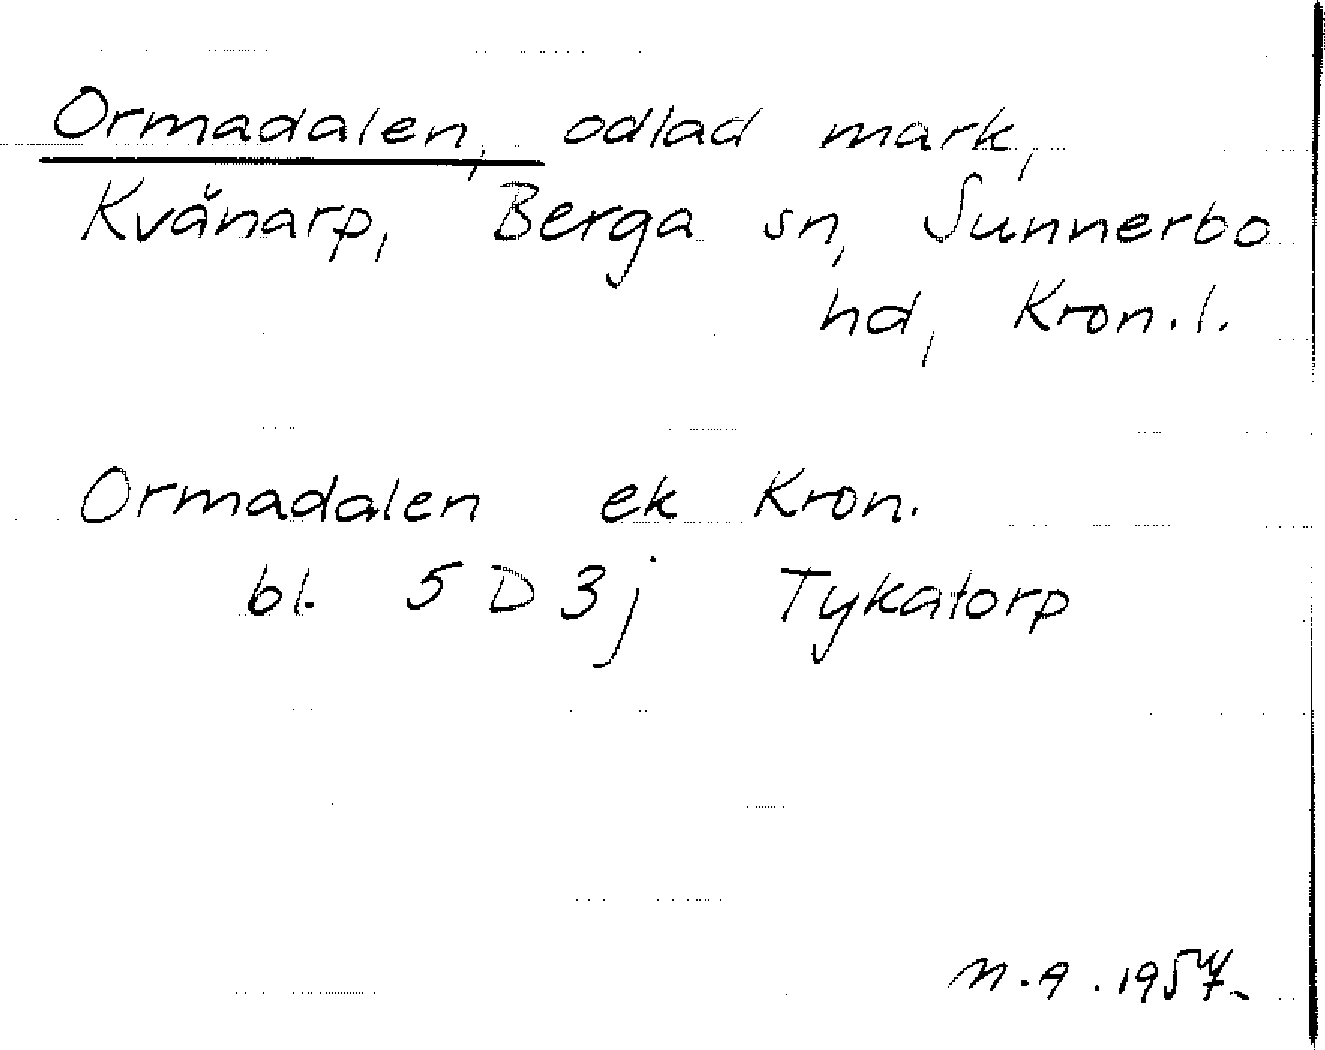 Ormadalen, odlad mark,
Kvänarp, Berga sn, Sunnerbo
hd, Kron. l.
Ormadalen ek Kron.
bl. 5 D 3 j Tykatorp
N. A. 1957.